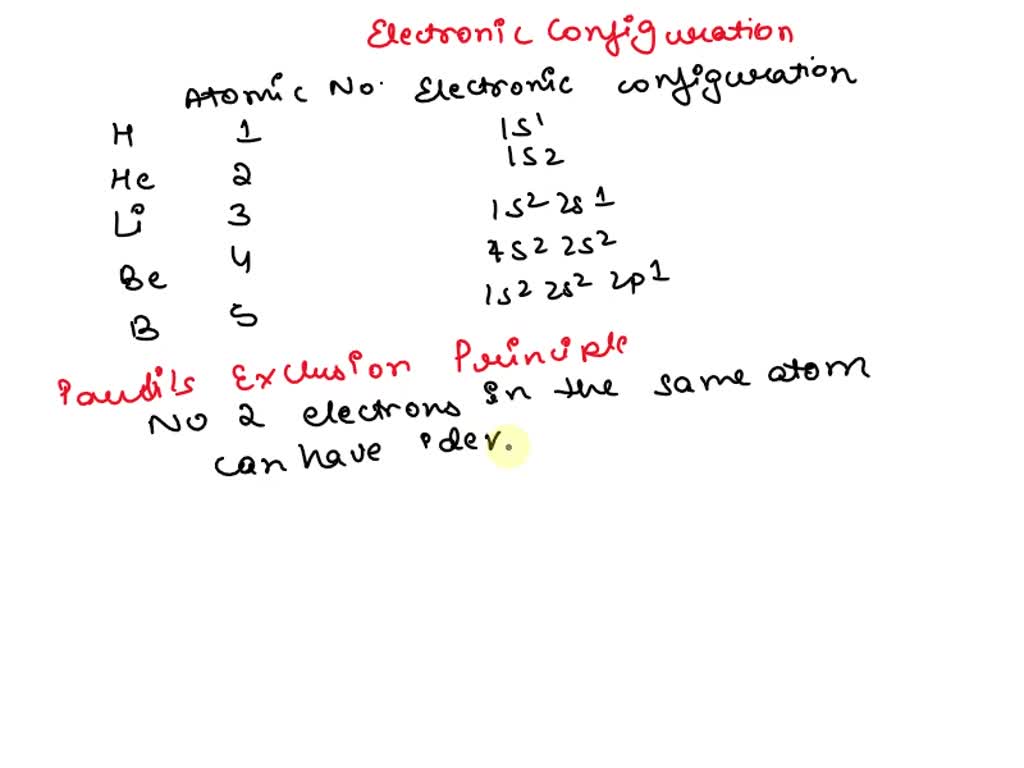 Electronic Configuration
Atomic No. Electronic configuration
H 1 1s¹
He 2 1s2
Li 3 1s² 2s1
Be 4 1s2 2s²
B 5 1s² 2s² 2p1
Paudils Exclusion Principle
No 2 electrons in the same atom
can have iden.